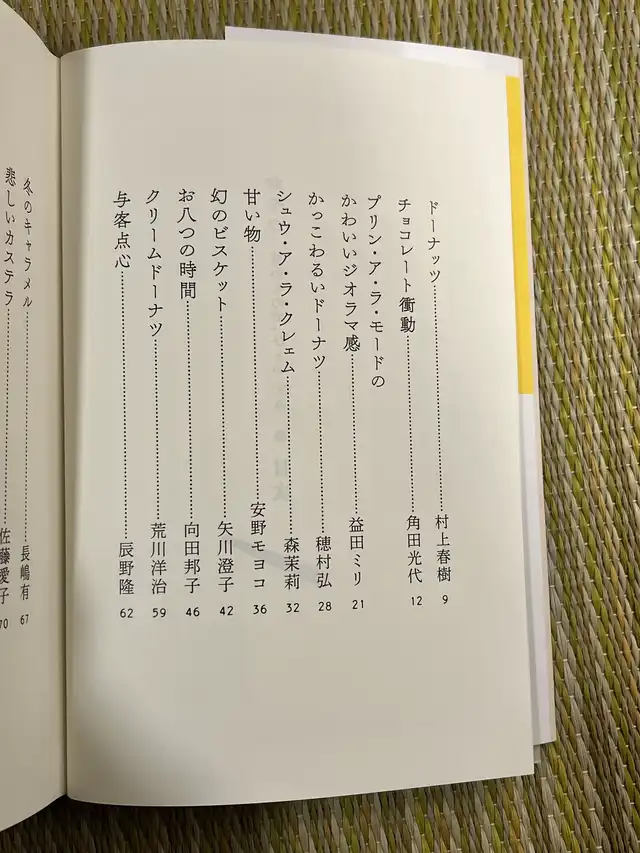 ドーナッツ……村上春樹 9
チョコレート衝動……角田光代 12
プリン・ア・ラ・モードの
かわいいジオラマ感……益田ミリ 21
かっこわるいドーナツ……穂村弘 28
シュウ・ア・ラ・クレェム……森茉莉 32
甘い物……安野モヨコ 36
幻のビスケット……矢川澄子 42
お八つの時間……向田邦子 46
クリームドーナツ……荒川洋治 59
与客点心……辰野隆 62
冬のキャラメル……長嶋有 67
悲しいカステラ……佐藤愛子 70